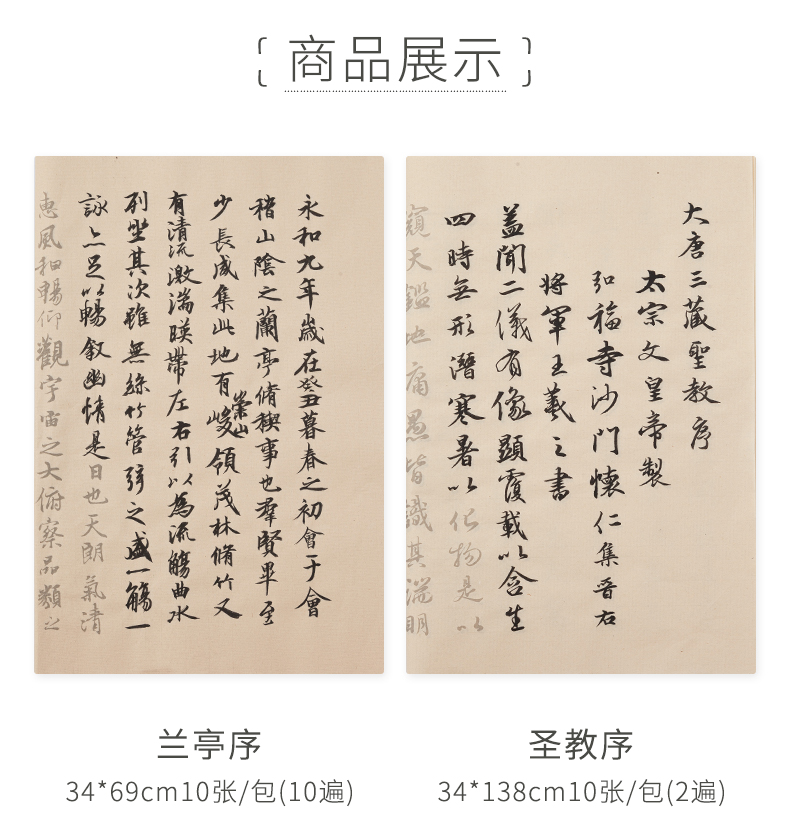 商品展示
永和九年歲在癸丑暮春之初會于會
稽山陰之蘭亭脩稧事也羣賢畢至
少長咸集此地有崇山峻領茂林脩竹又
有清流激湍暎帶左右引以為流觴曲水
列坐其次雖無絲竹管弦之盛一觴一
詠亦足以暢叙幽情是日也天朗氣清
惠風和暢仰觀宇宙之大俯察品類之
大唐三藏聖教序
太宗文皇帝製
弘福寺沙門懷仁集晉右
將軍王羲之書
蓋聞二儀有像顯覆載以含生
四時無形潛寒暑以化物是以
窺天鑑地庸愚皆識其端明
兰亭序
34*69cm10张/包(10遍)
圣教序
34*138cm10张/包(2遍)